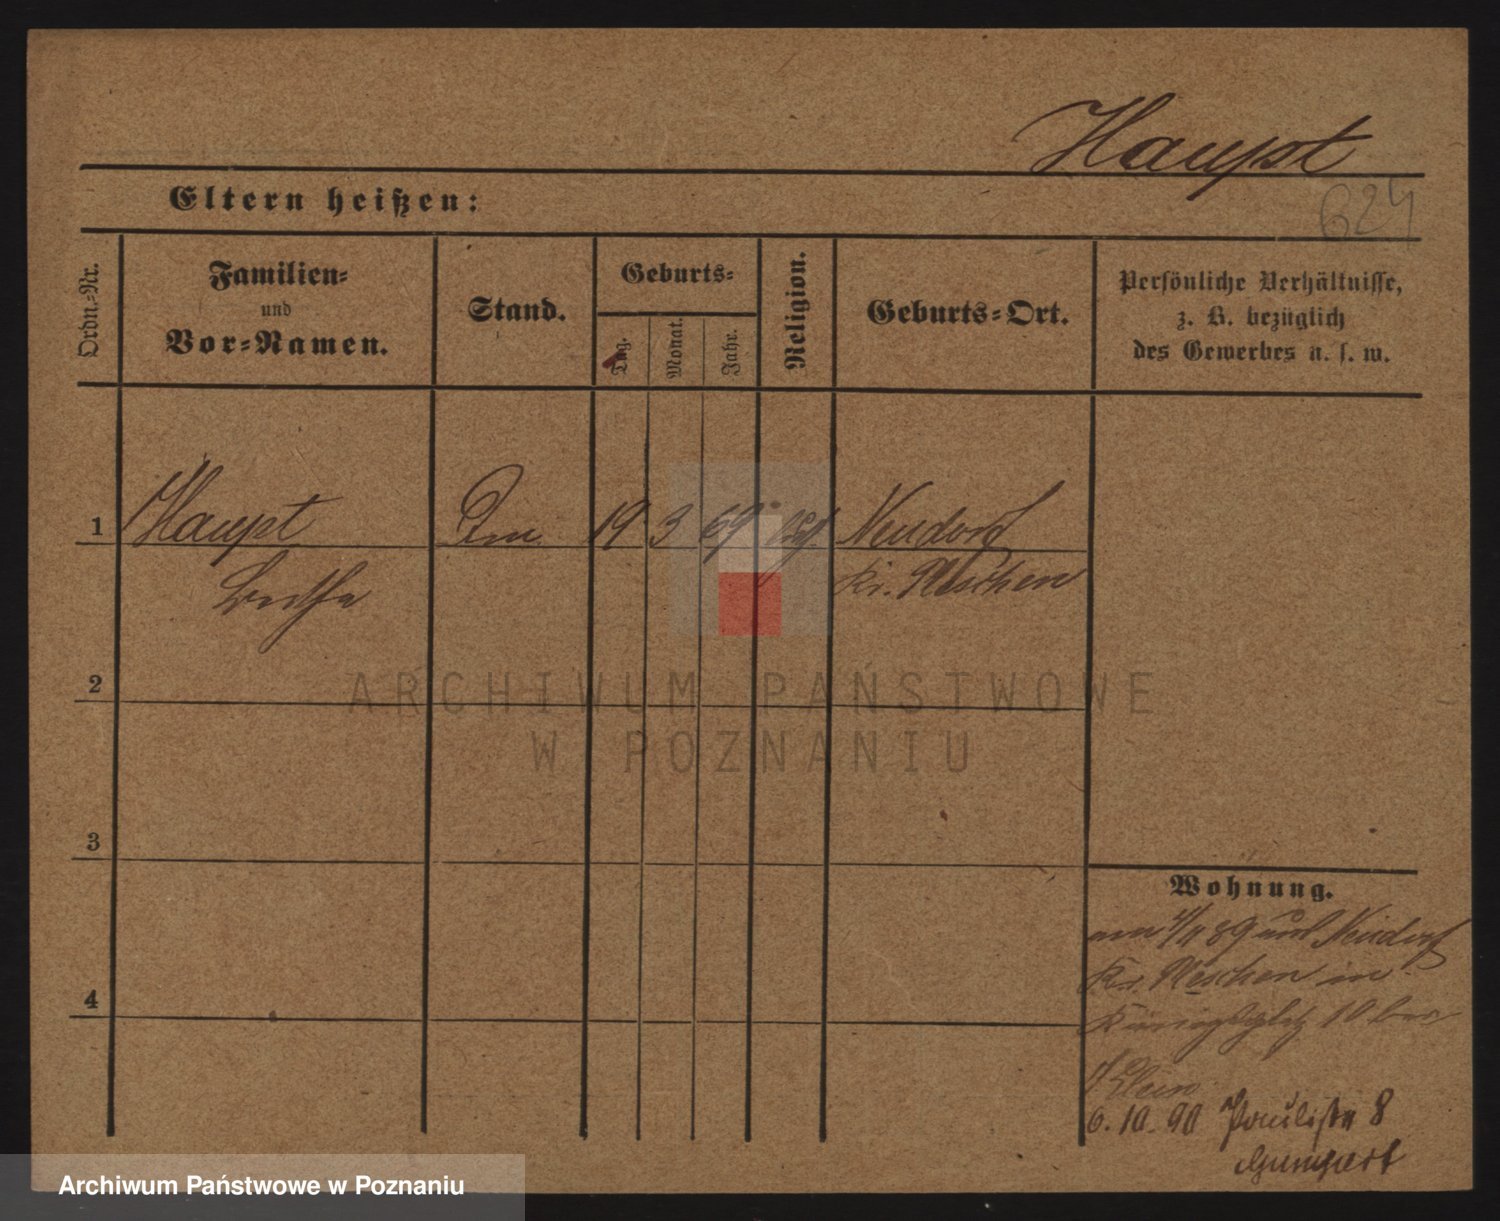 Haupt
624
Eltern heißen:
Ordn.-Nr.
Familien-
und
Vor-Namen.
Stand.
Geburts-
Tag.
Monat.
Jahr.
Religion.
Geburts-Ort.
Persönliche Verhältnisse,
z. B. bezüglich
des Gewerbes u. s. w.
1 Haupt 19 3 69 Neudorf
Kr. Pleschen
2
ARCHIWUM PAŃSTWOWE
W POZNANIU
3
Wohnung.
am 4/11 89 aus Neudorf
Kr. Pleschen in
4
Königsplatz 10 bei
6.10.90 Paulistr 8
Gumpert
Archiwum Państwowe w Poznaniu